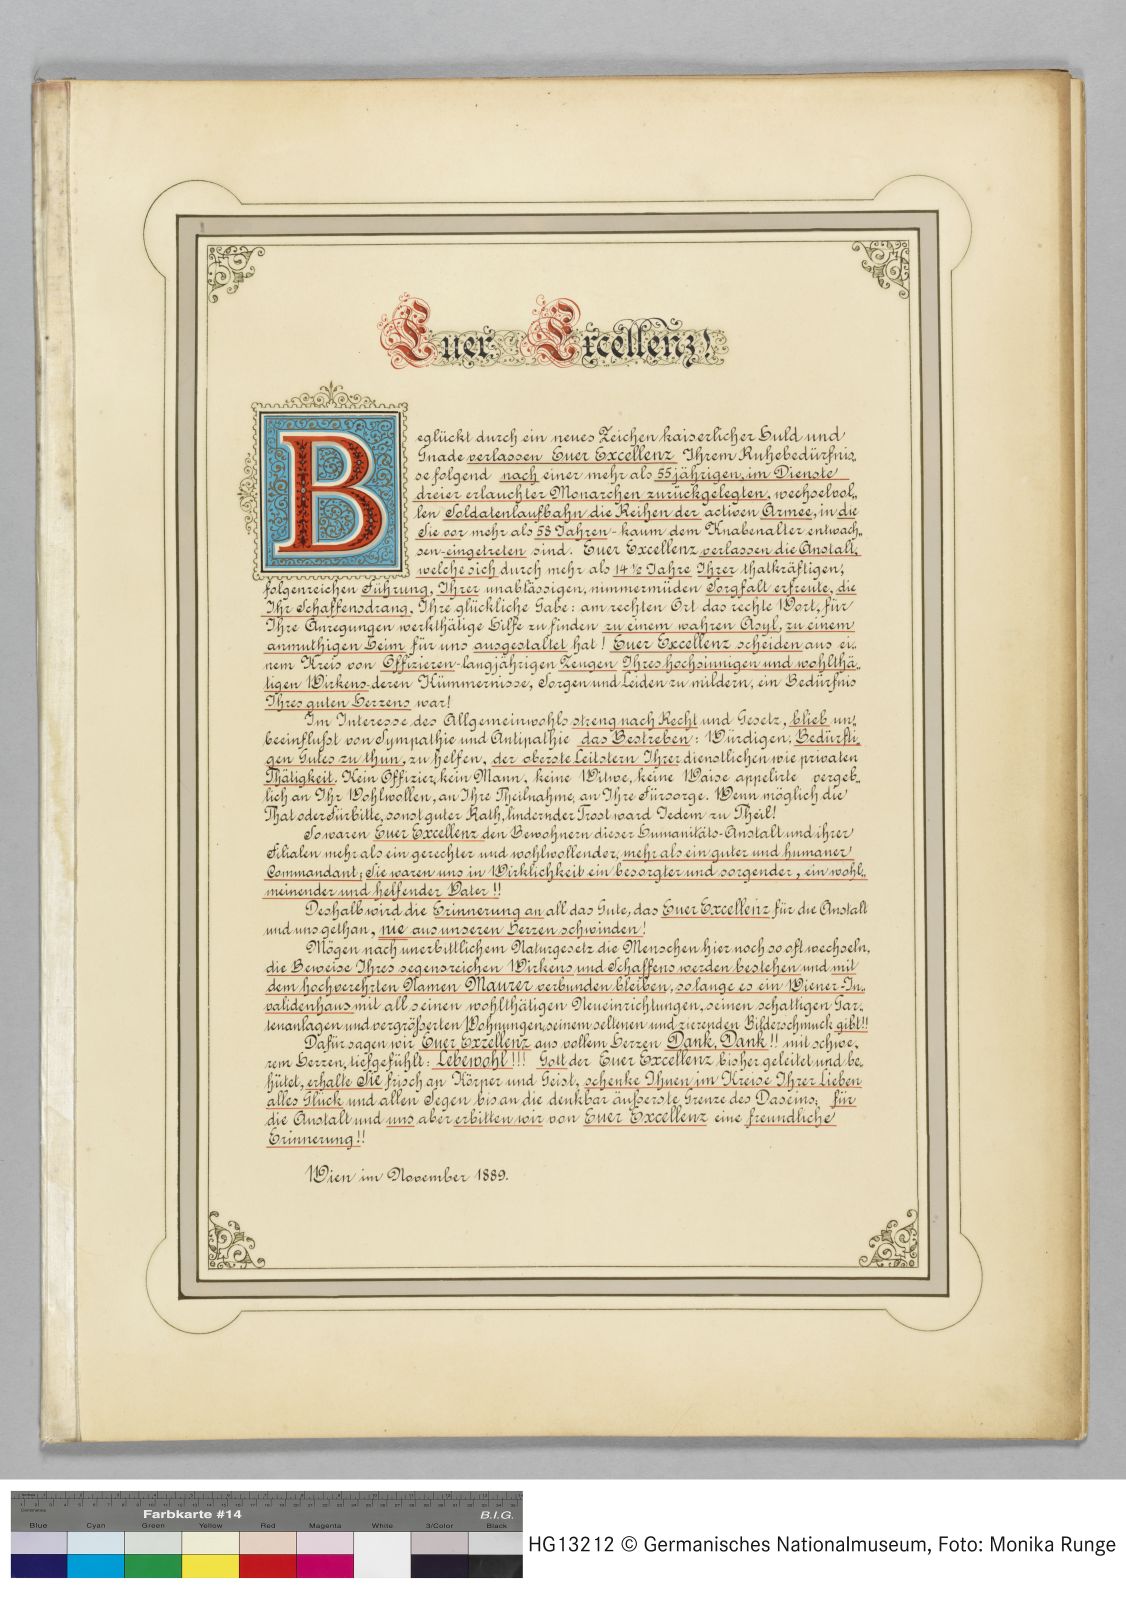 Euer Excellenz!
Beglückt durch ein neues Zeichen kaiserlicher Huld und
Gnade verlassen Euer Excellenz Ihrem Ruhebedürfnis-
se folgend nach einer mehr als 55jährigen, im Dienste
dreier erlauchter Monarchen zurückgelegten, wechselvol-
len Soldatenlaufbahn die Reihen der activen Armee, in die
Sie vor mehr als 58 Jahren - kaum dem Knabenalter entwach-
sen - eingetreten sind. Euer Excellenz verlassen die Anstalt,
welche sich durch mehr als 14 ½ Jahre Ihrer thatkräftigen,
folgenreichen Führung, Ihrer unablässigen, nimmermüden Sorgfalt erfreute, die
Ihr Schaffensdrang, Ihre glückliche Gabe: am rechten Ort das rechte Wort, für
Ihre Anregungen werkthätige Hilfe zu finden zu einem wahren Asyl, zu einem
anmuthigen Heim für uns ausgestaltet hat! Euer Excellenz scheiden aus ei-
nem Kreis von Offizieren - langjährigen Zeugen Ihres hochsinnigen und wohlthä-
tigen Wirkens - deren Kümmernisse, Sorgen und Leiden zu mildern, ein Bedürfnis
Ihres guten Herzens war!
Im Interesse des Allgemeinwohls streng nach Recht und Gesetz, blieb un-
beeinflußt von Sympathie und Antipathie das Bestreben: Würdigen, Bedürfti-
gen Gutes zu thun, zu helfen, der oberste Leitstern Ihrer dienstlichen wie privaten
Thätigkeit. Kein Offizier, kein Mann, keine Witwe, keine Waise appelirte vergeb-
lich an Ihr Wohlwollen, an Ihre Theilnahme, an Ihre Fürsorge. Wenn möglich die
That oder Fürbitte, sonst guter Rath, lindernder Trost ward Jedem zu Theil!
So waren Euer Excellenz den Bewohnern dieser Humanitäts-Anstalt und ihrer
Filialen mehr als ein gerechter und wohlwollender, mehr als ein guter und humaner
Commandant; Sie waren uns in Wirklichkeit ein besorgter und sorgender, ein wohl-
meinender und helfender Vater!!
Deshalb wird die Erinnerung an all das Gute, das Euer Excellenz für die Anstalt
und uns gethan, nie aus unseren Herzen schwinden!
Mögen nach unerbittlichem Naturgesetz die Menschen hier noch so oft wechseln,
die Beweise Ihres segensreichen Wirkens und Schaffens werden bestehen und mit
dem hochverehrten Namen Maurer verbunden bleiben, so lange es ein Wiener-In-
validenhaus mit all seinen wohlthätigen Neueinrichtungen, seinen schattigen Gar-
tenanlagen und vergrößerten Wohnungen, seinem seltenen und zierenden Bilderschmuck gibt!!
Dafür sagen wir Euer Exzellenz aus vollem Herzen Dank, Dank!! mit schwe-
rem Herzen, tiefgefühlt: Lebewohl!!! Gott der Euer Excellenz bisher geleitet und be-
hütet, erhalte Sie frisch an Körper und Geist, schenke Ihnen im Kreise Ihrer Lieben
alles Glück und allen Segen bis an die denkbar äußerste Grenze des Daseins; für
die Anstalt und uns aber erbitten wir von Euer Excellenz eine freundliche
Erinnerung!!
Wien im November 1889.
Farbkarte #14
B.I.G.
Blue Cyan Green Yellow Red Magenta White 3/Color Black
HG13212 © Germanisches Nationalmuseum, Foto: Monika Runge